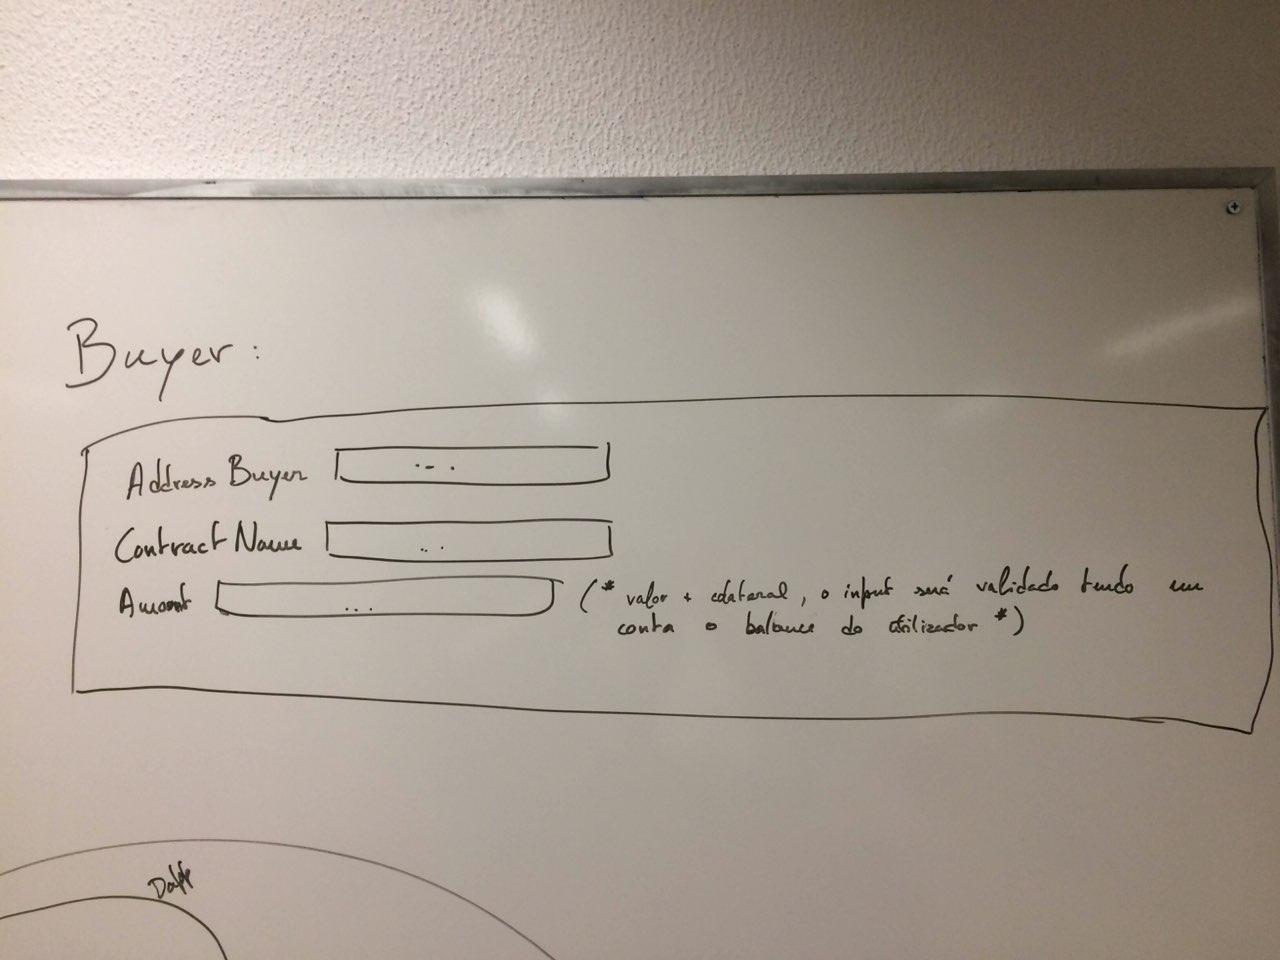 Buyer:
Address Buyer ...
Contract Name ...
Amount ... (* valor + colateral, o input será validado tendo em
conta o balance do utilizador *)
DaPP